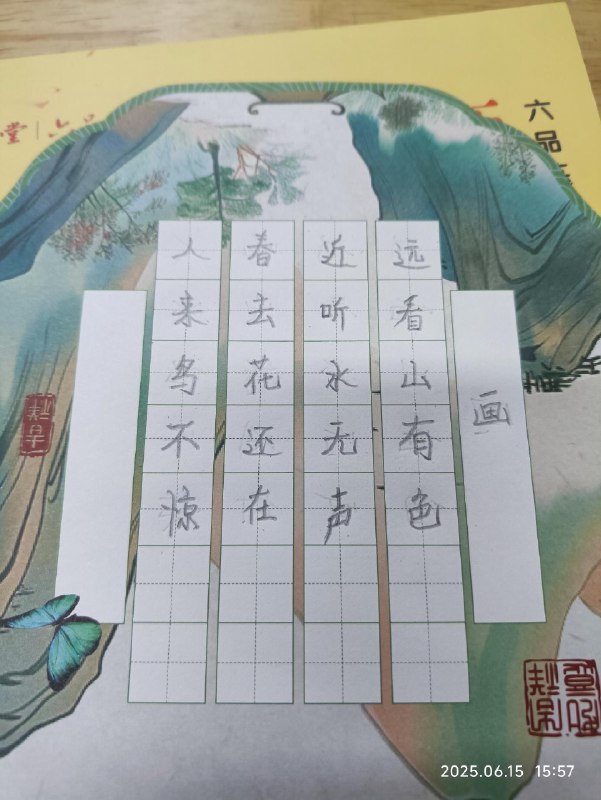 画
远看山有色
近听水无声
春去花还在
人来鸟不惊
六品
堂 六品
2025.06.15 15:57